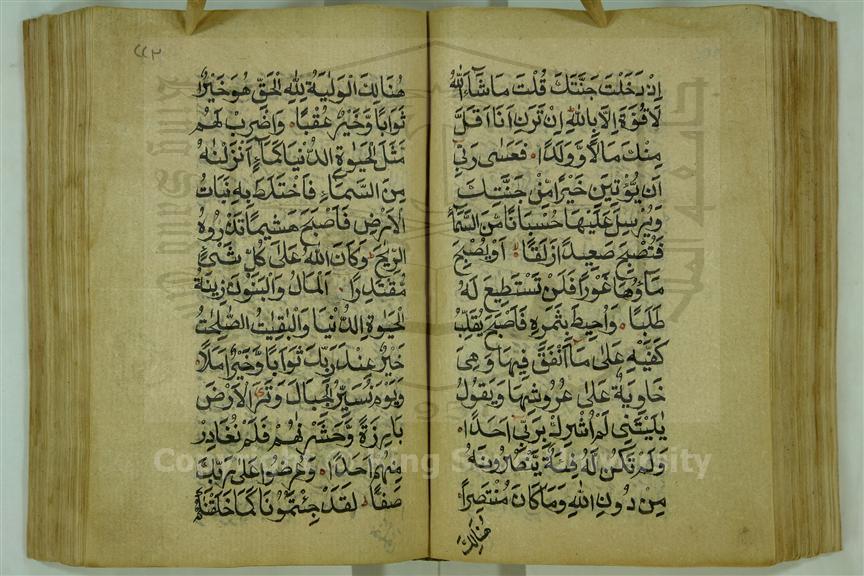 اِذْ دَخَلْتَ جَنَّتَكَ قُلْتَ مَا شَآءَ اللّٰهُ
لَا قُوَّةَ اِلَّا بِاللّٰهِ اِنْ تَرَنِ اَنَا اَقَلَّ
مِنْكَ مَالًا وَّوَلَدًا فَعَسٰى رَبِّيْ
اَنْ يُّؤْتِيَنِ خَيْرًا مِّنْ جَنَّتِكَ
وَيُرْسِلَ عَلَيْهَا حُسْبَانًا مِّنَ السَّمَآءِ
فَتُصْبِحَ صَعِيْدًا زَلَقًا اَوْ يُصْبِحَ
مَآؤُهَا غَوْرًا فَلَنْ تَسْتَطِيْعَ لَهٗ
طَلَبًا وَاُحِيْطَ بِثَمَرِهٖ فَاَصْبَحَ يُقَلِّبُ
كَفَّيْهِ عَلٰى مَآ اَنْفَقَ فِيْهَا وَهِيَ
خَاوِيَةٌ عَلٰى عُرُوْشِهَا وَيَقُوْلُ
يٰلَيْتَنِيْ لَمْ اُشْرِكْ بِرَبِّيْ اَحَدًا
وَلَمْ تَكُنْ لَّهٗ فِئَةٌ يَّنْصُرُوْنَهٗ
مِنْ دُوْنِ اللّٰهِ وَمَا كَانَ مُنْتَصِرًا
هُنَالِكَ
٢٢٢
هُنَالِكَ الْوَلَايَةُ لِلّٰهِ الْحَقِّ هُوَ خَيْرٌ
ثَوَابًا وَّخَيْرٌ عُقْبًا وَاضْرِبْ لَهُمْ
مَّثَلَ الْحَيٰوةِ الدُّنْيَا كَمَآءٍ اَنْزَلْنٰهُ
مِنَ السَّمَآءِ فَاخْتَلَطَ بِهٖ نَبَاتُ
الْاَرْضِ فَاَصْبَحَ هَشِيْمًا تَذْرُوْهُ
الرِّيٰحُ وَكَانَ اللّٰهُ عَلٰى كُلِّ شَيْءٍ
مُّقْتَدِرًا اَلْمَالُ وَالْبَنُوْنَ زِيْنَةُ
الْحَيٰوةِ الدُّنْيَا وَالْبٰقِيٰتُ الصّٰلِحٰتُ
خَيْرٌ عِنْدَ رَبِّكَ ثَوَابًا وَّخَيْرٌ اَمَلًا
وَيَوْمَ نُسَيِّرُ الْجِبَالَ وَتَرَى الْاَرْضَ
بَارِزَةً وَّحَشَرْنٰهُمْ فَلَمْ نُغَادِرْ
مِنْهُمْ اَحَدًا وَعُرِضُوْا عَلٰى رَبِّكَ
صَفًّا لَقَدْ جِئْتُمُوْنَا كَمَا خَلَقْنٰكُمْ